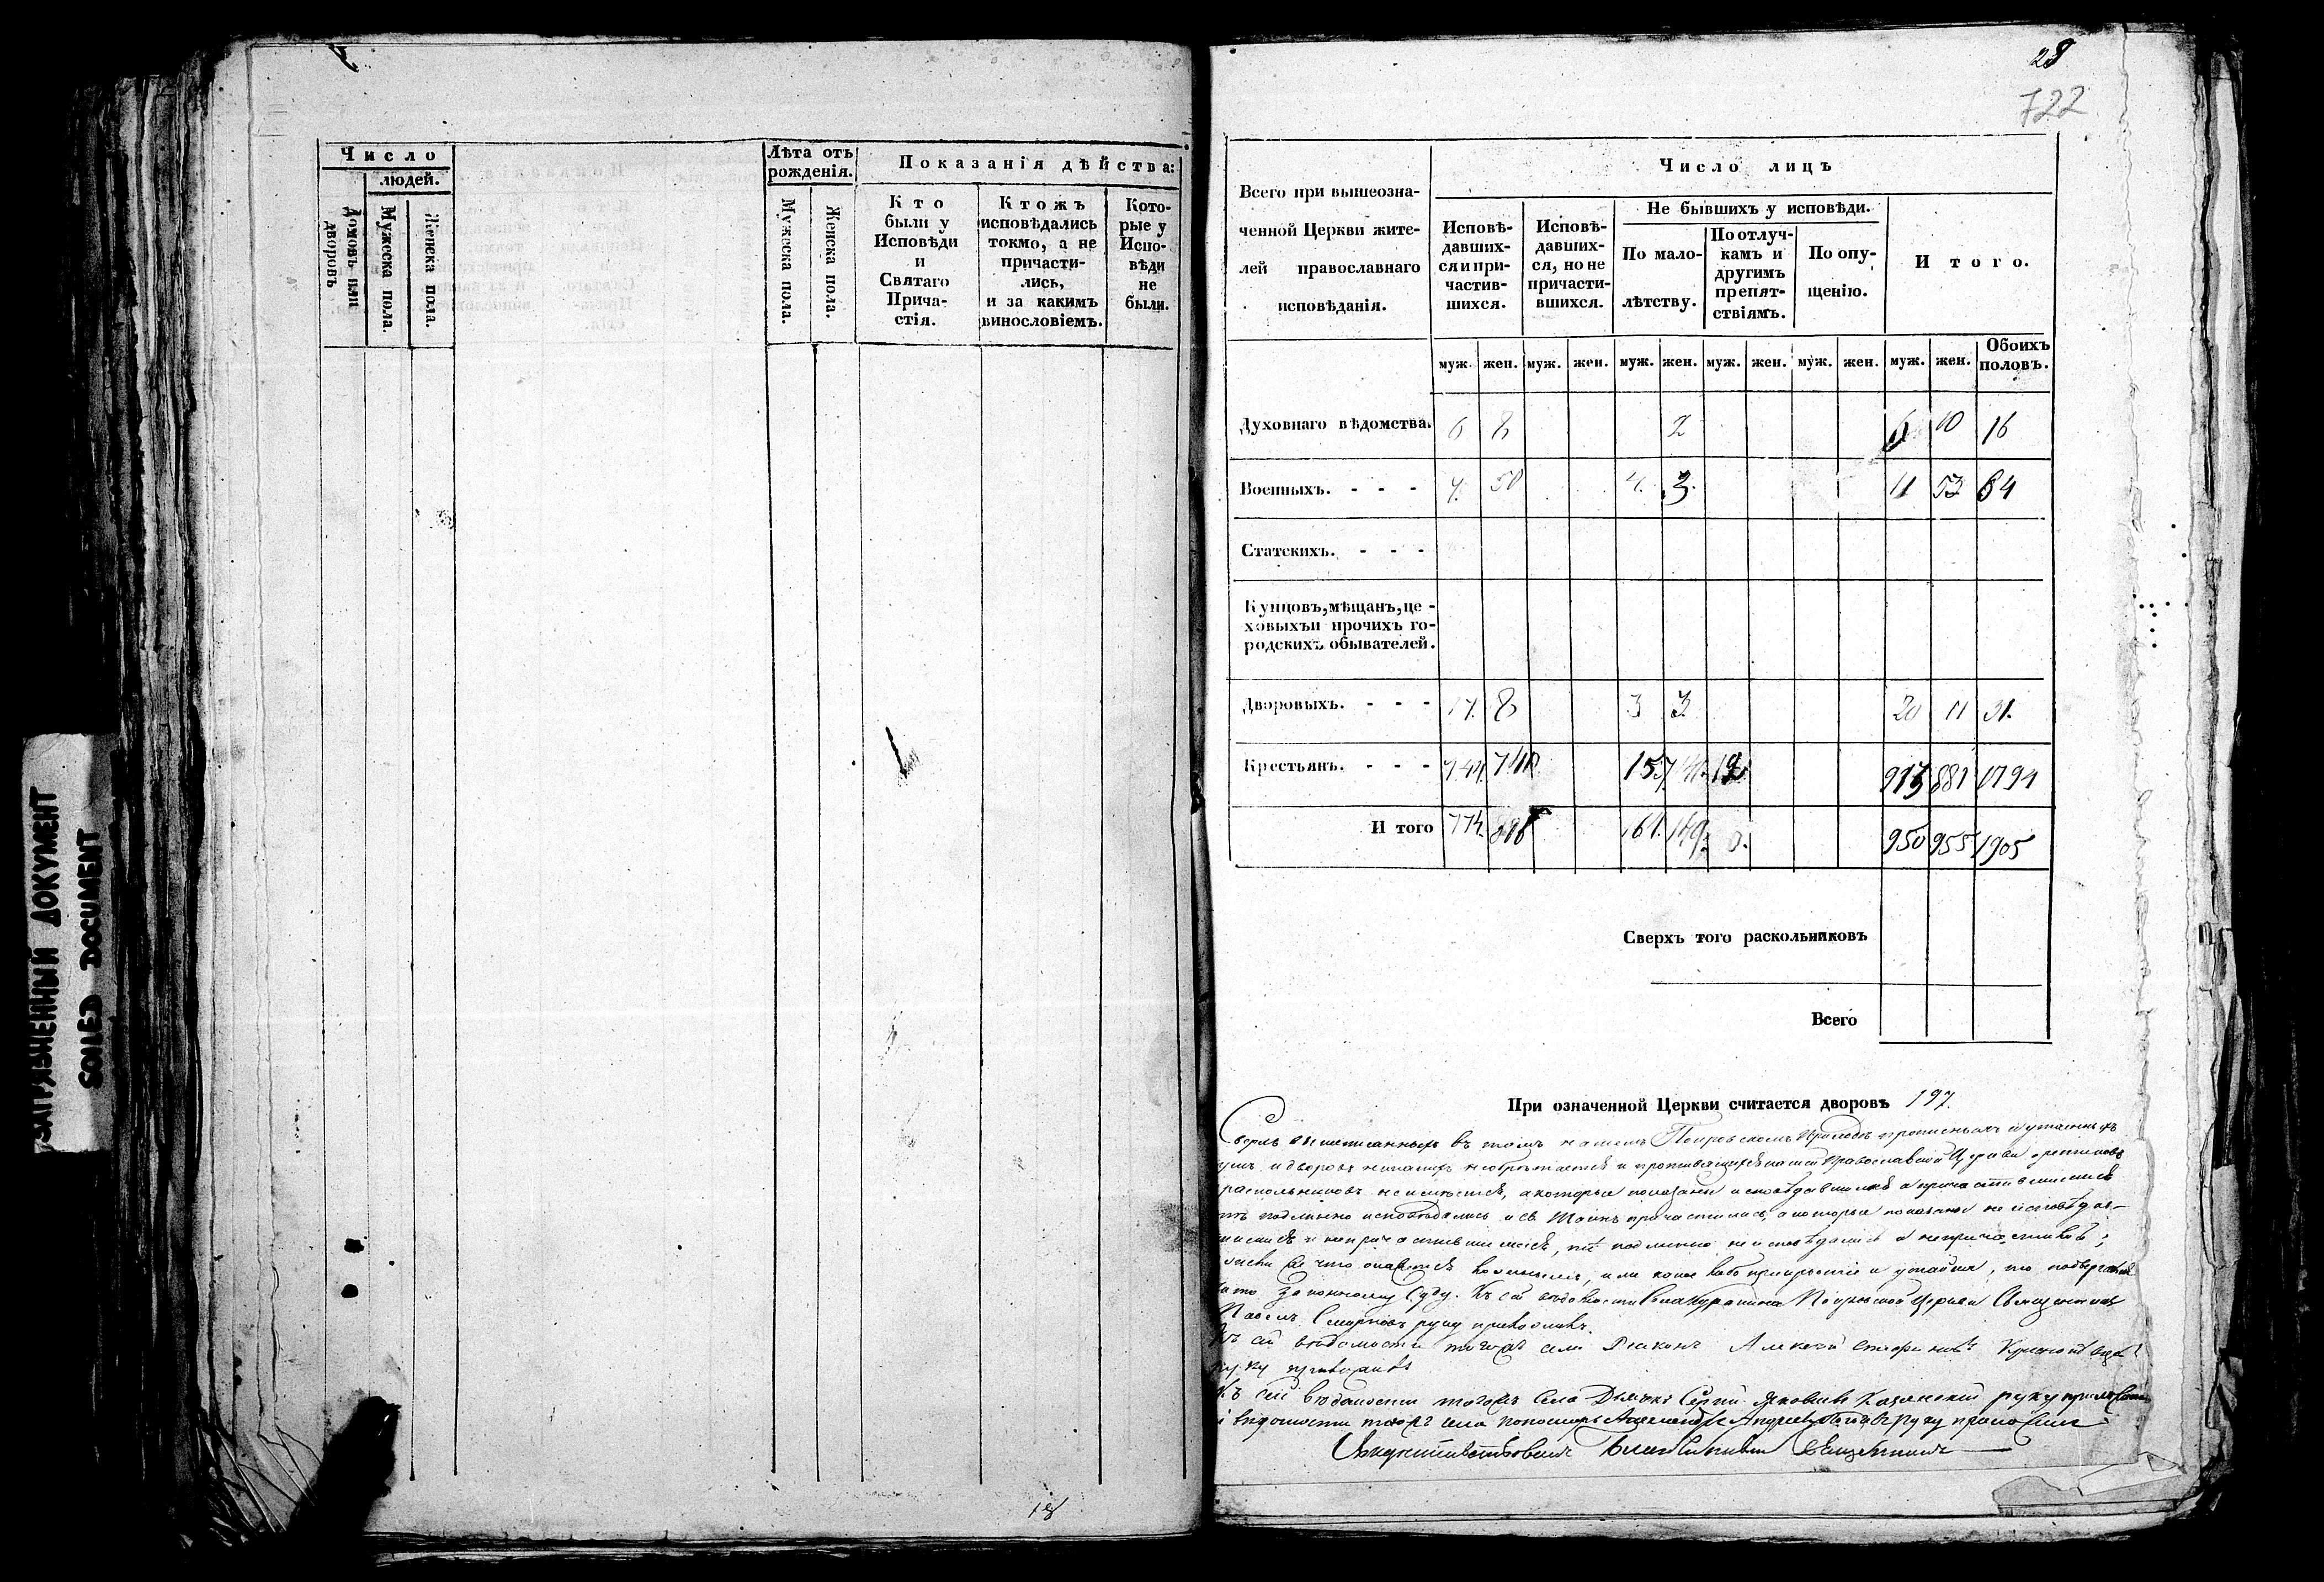 ЗАГРЯЗНЕННЫЙ ДОКУМЕНТ
SOILED DOCUMENT
Число
людей.
Домовъ или дворовъ
Мужеска пола.
Женска пола.
Лѣта отъ рожденія.
Мужеска пола.
Женска пола.
Показанія дѣйства:
Кто
были у
Исповѣди
и
Святаго
Прича-
стія.
Ктожъ
исповѣдались
токмо, а не
причасти-
лись,
и за какимъ
винословіемъ.
Кото-
рые у
Испо-
вѣди
не
были.
18
28
722
Всего при вышеозна-
ченной Церкви жите-
лей православнаго
исповѣданія.
Число лицъ
Исповѣ-
давших-
ся и при-
частив-
шихся.
Исповѣ-
давших-
ся, но не
причасти-
вшихся.
Не бывшихъ у исповѣди.
По мало-
лѣтству.
По отлуч-
камъ и
другимъ
препят-
ствіямъ.
По опу-
щенію.
И того.
муж. жен. муж. жен. муж. жен. муж. жен. муж. жен. муж. жен. Обоихъ половъ.
Духовнаго вѣдомства. 6 8 2 6 10 16
Военныхъ. - - - 7. 50 4. 3. 11 53 64
Статскихъ. - - -
Купцовъ, мѣщанъ, це-
ховыхъ и прочихъ го-
родскихъ обывателей.
Дворовыхъ. - - - 17. 8 3 3. 20 11 31.
Крестьянъ. - - - 744. 740 157 12 913 881 1794
И того 774. 161. 149. 950 955 1905
Сверхъ того раскольниковъ
Всего
При означенной Церкви считается дворовъ 197.
Сверхъ вышеписанныхъ въ томъ нашемъ Покровскомъ Приходѣ прописныхъ и утаенныхъ
и дворовъ православной Церкви
раскольниковъ не имѣется, а которые показаны исповѣдавшимися и причастившимися
подлинно исповѣдались и Св. Таинъ причастились, а которые показаны не исповѣдав-
шимися и не причастившимися, тѣ подлинно не исповѣдались и не причастились;
что или какое либо прикрытіе и утайка, то
законному Суду. Къ сей вѣдомости Покровской Церкви Священникъ
Павелъ Смирновъ руку приложилъ.
Къ сей вѣдомости тогожъ села Диаконъ Алексей
руку приложилъ
Къ сей вѣдомости тогожъ села Дьячокъ Сергій Яковлевъ Казанскій руку приложилъ
вѣдомости тогожъ села пономарь Александръ Андреевъ руку приложилъ
Свидѣтельствовалъ Благочинный Священникъ